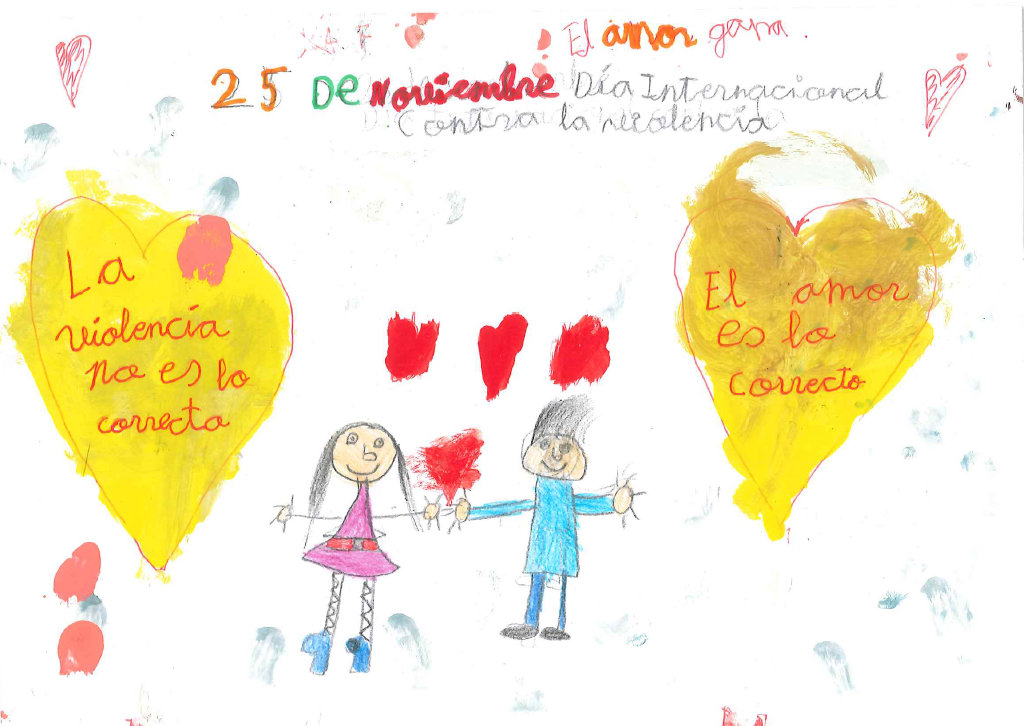 El amor gana.
25 DE Noviembre Día Internacional
Contra la violencia
La
violencia
no es lo
correcto
El amor
es lo
correcto